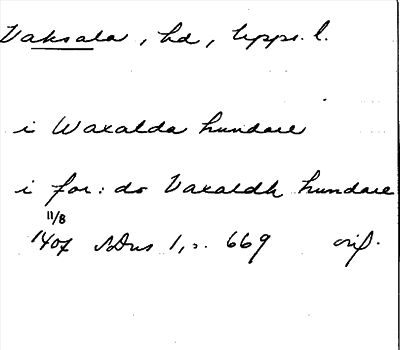 Vaksala, hd, Upps. l.
i Waxalda hundare
i for: do Vaxaldh hundare
11/8
1407 SDns 1, s. 669 orig.